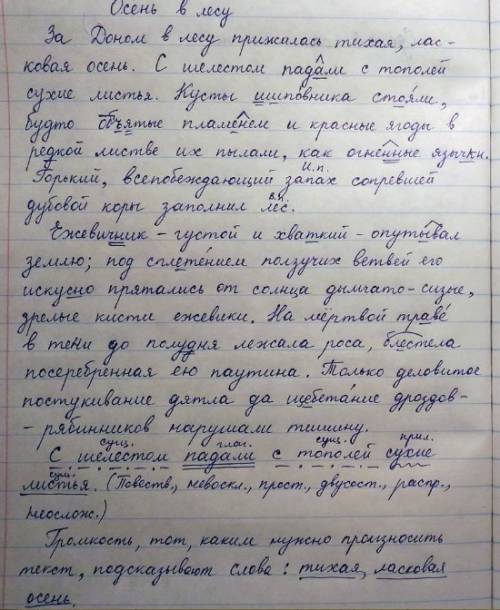 Осень в лесу
За Доном в лесу прижалась тихая, лас-
ковая осень. С шелестом падали с тополей
сухие листья. Кусты шиповника стояли,
будто объятые пламенем и красные ягоды в
редкой листве их пылали, как огненные язычки.
И.п.
Горький, всепобеждающий запах сопревшей
В.п.
дубовой коры заполнил лес.
Ежевичник - густой и хваткий - опутывал
землю; под сплетением ползучих ветвей его
искусно прятались от солнца дымчато-сизые,
зрелые кисти ежевики. На мёртвой траве
в тени до полудня лежала роса, блестела
посеребренная ею паутина. Только деловитое
постукивание дятла да щебетание дроздов-
-рябинников нарушали тишину.
сущ. глаг. сущ. прил.
С шелестом падали с тополей сухие
сущ.
листья. (Повеств., невоскл., прост., двусост., распр.,
неослож.)
Громкость, тот, каким нужно произносить
текст, подсказывают слова: тихая, ласковая
осень.